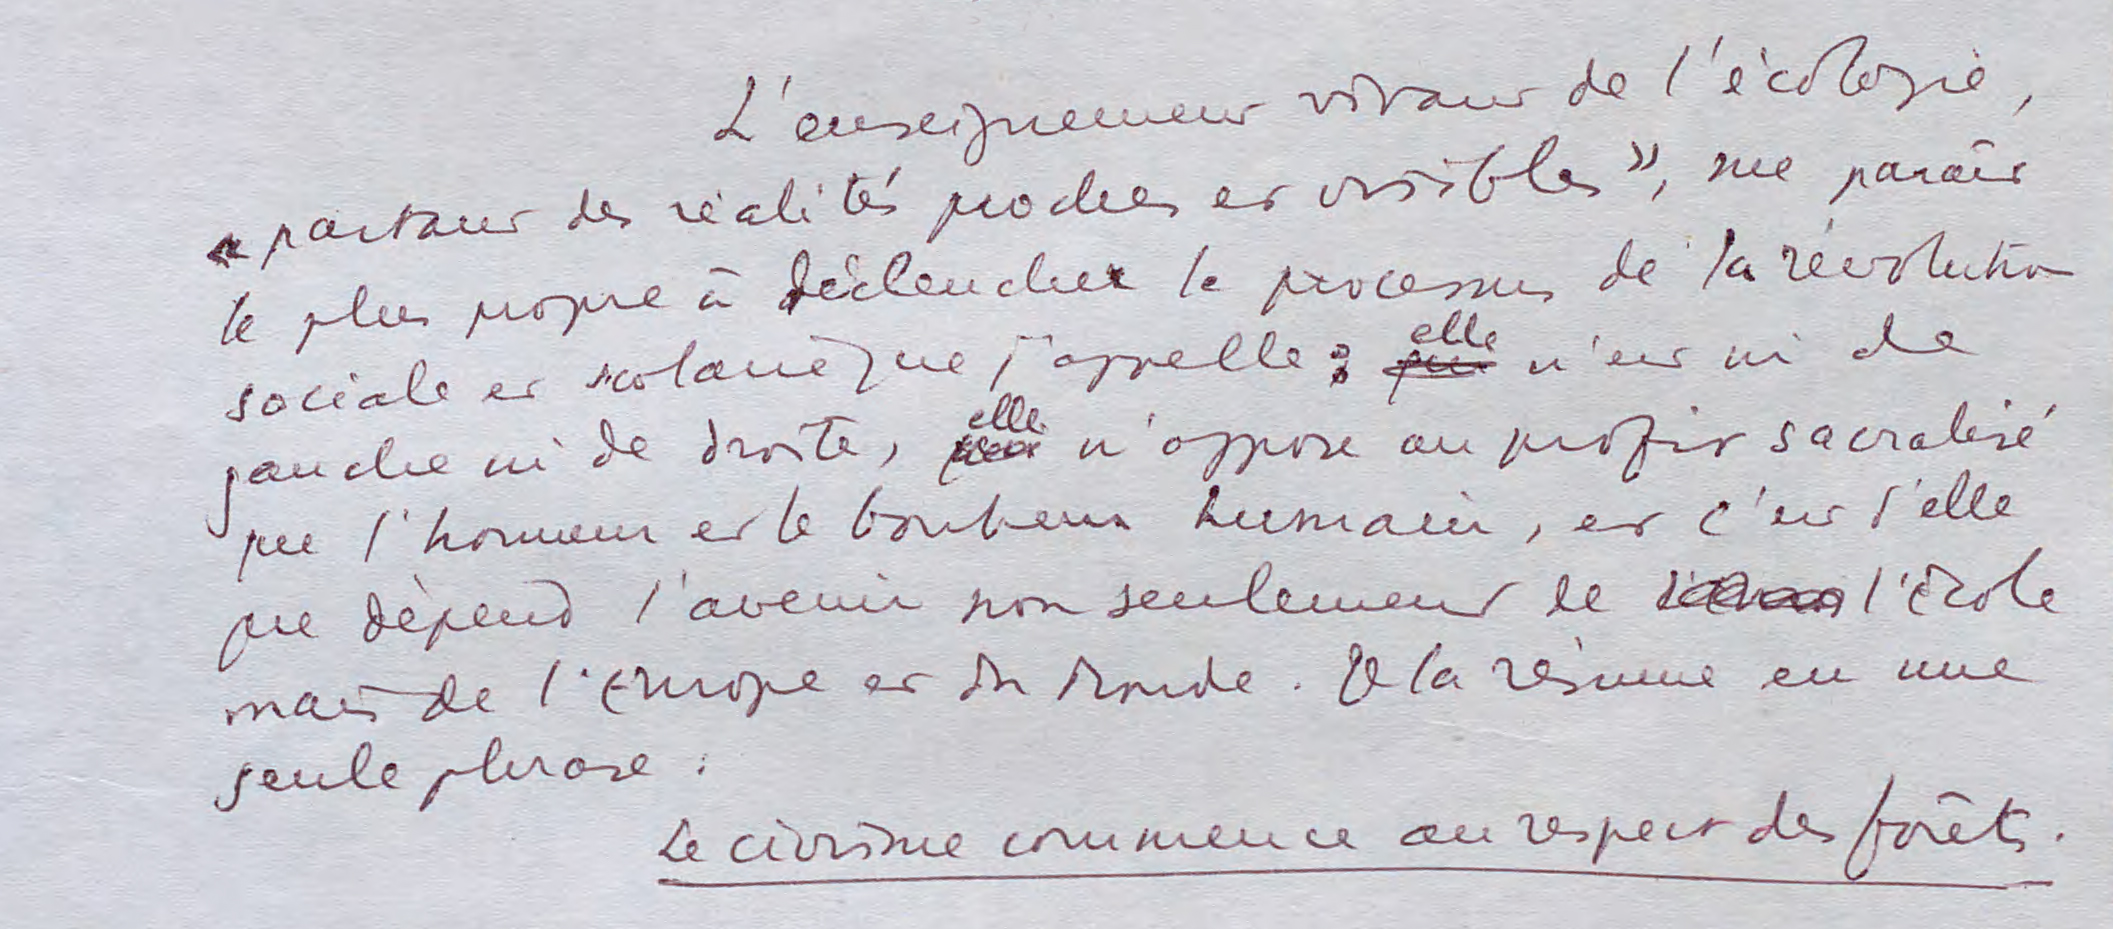 L'enseignement vivant de l'écologie,
« partant des réalités proches et visibles », me paraît
le plus propre à déclencher le processus de la révolution
sociale et scolaire que j'appelle : elle n'est ni de
gauche ni de droite, elle n'oppose au profit sacralisé
que l'honneur et le bonheur humain, et c'est d'elle
que dépend l'avenir non seulement de l'École
mais de l'Europe et du Monde. Je la résume en une
seule phrase :
Le civisme commence au respect des forêts.